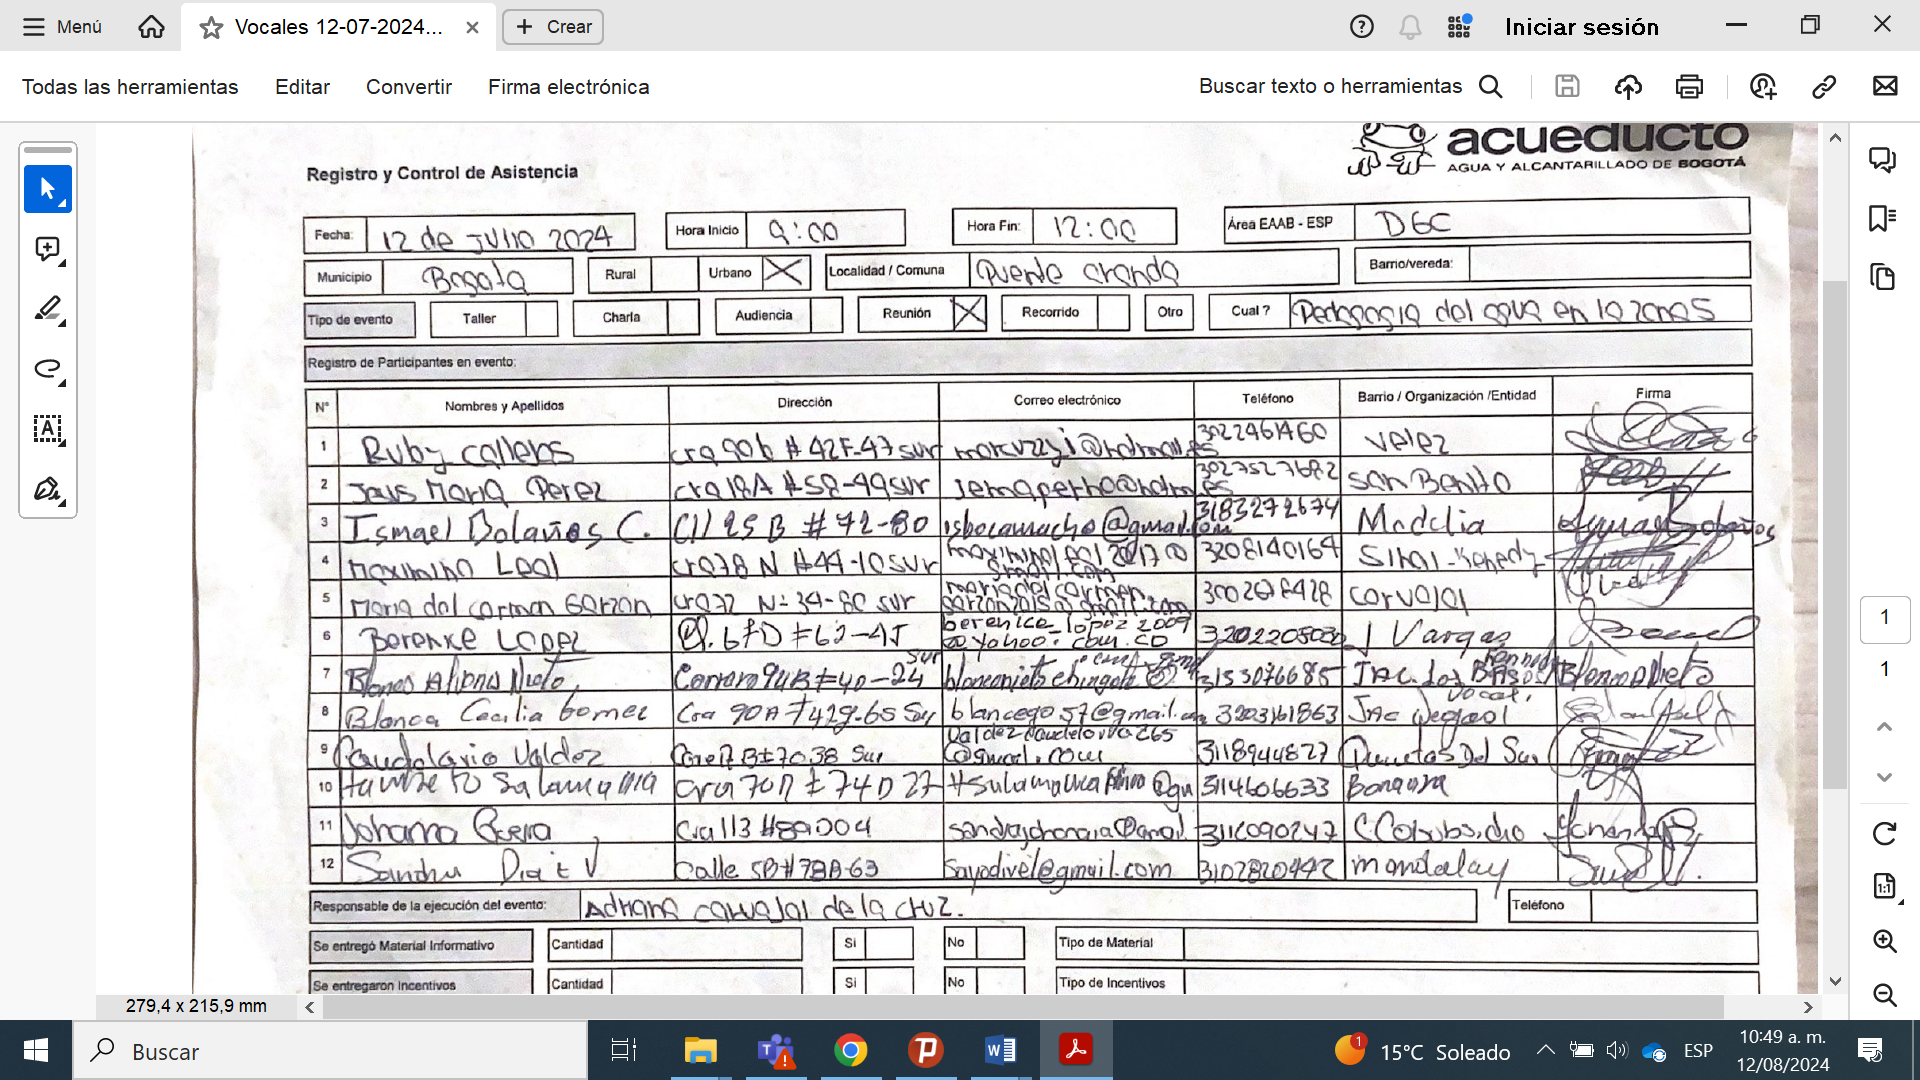 Menú Vocales 12-07-2024... Crear Iniciar sesión
Todas las herramientas Editar Convertir Firma electrónica Buscar texto o herramientas
acueducto
AGUA Y ALCANTARILLADO DE BOGOTÁ
Registro y Control de Asistencia
Fecha: 12 de julio 2024 Hora Inicio 9:00 Hora Fin: 12:00 Área EAAB - ESP DGC
Municipio Bogota Rural Urbano X Localidad / Comuna Puente aranda Barrio/vereda:
Tipo de evento Taller Charla Audiencia Reunión X Recorrido Otro Cual ? Pedagogia del agua en la zona 5
Registro de Participantes en evento:
N° Nombres y Apellidos Dirección Correo electrónico Teléfono Barrio / Organización /Entidad Firma
1 Ruby callejas cra 90b # 42F-47 sur 3022461460 velez
2 Jesus Maria Perez cra 18A #58-49 sur 3027527682 San Benito
3 Ismael Bolaños C. Cll 25 B # 72-80 isbocamacho@gmail.com 3183272674 Modelia
4 Maximino Leal cra 78 N #44-10 sur maximinoleal2017@gmail.com 3208140164 Sinai-Kenedy
5 Maria del carmen Garzon cra 72 N= 34-80 sur 3002678428 carvajal
6 Berenice Lopez berenice_lopez2009@yahoo.com.co J Vargas
7 Blanca Nieto Carrera 94B #40-24 sur 3153076685 JAC Los
8 Blanca Cecilia Gomez Cra 90A #42g-65 Sur blancego57@gmail.com 3203161863 JAC
9 Valdez 3118944827 Del Sur
10 Salamanca Cra 70 # 74D 27 3114606633 Bonanza
11 Johanna Cra 113 #89D04 3116090247 C. Colsubsidio
12 Sandra Diaz V Calle 5B #78A-63 Sayodivel@gmail.com 3102820442 mandalay
Responsable de la ejecución del evento: Adriana carvajal de la cruz. Teléfono
Se entregó Material Informativo Cantidad Si No Tipo de Material
Se entregaron Incentivos Cantidad Si No Tipo de Incentivos
1
1
279,4 x 215,9 mm
Buscar 1 15°C Soleado ESP 10:49 a. m.
12/08/2024